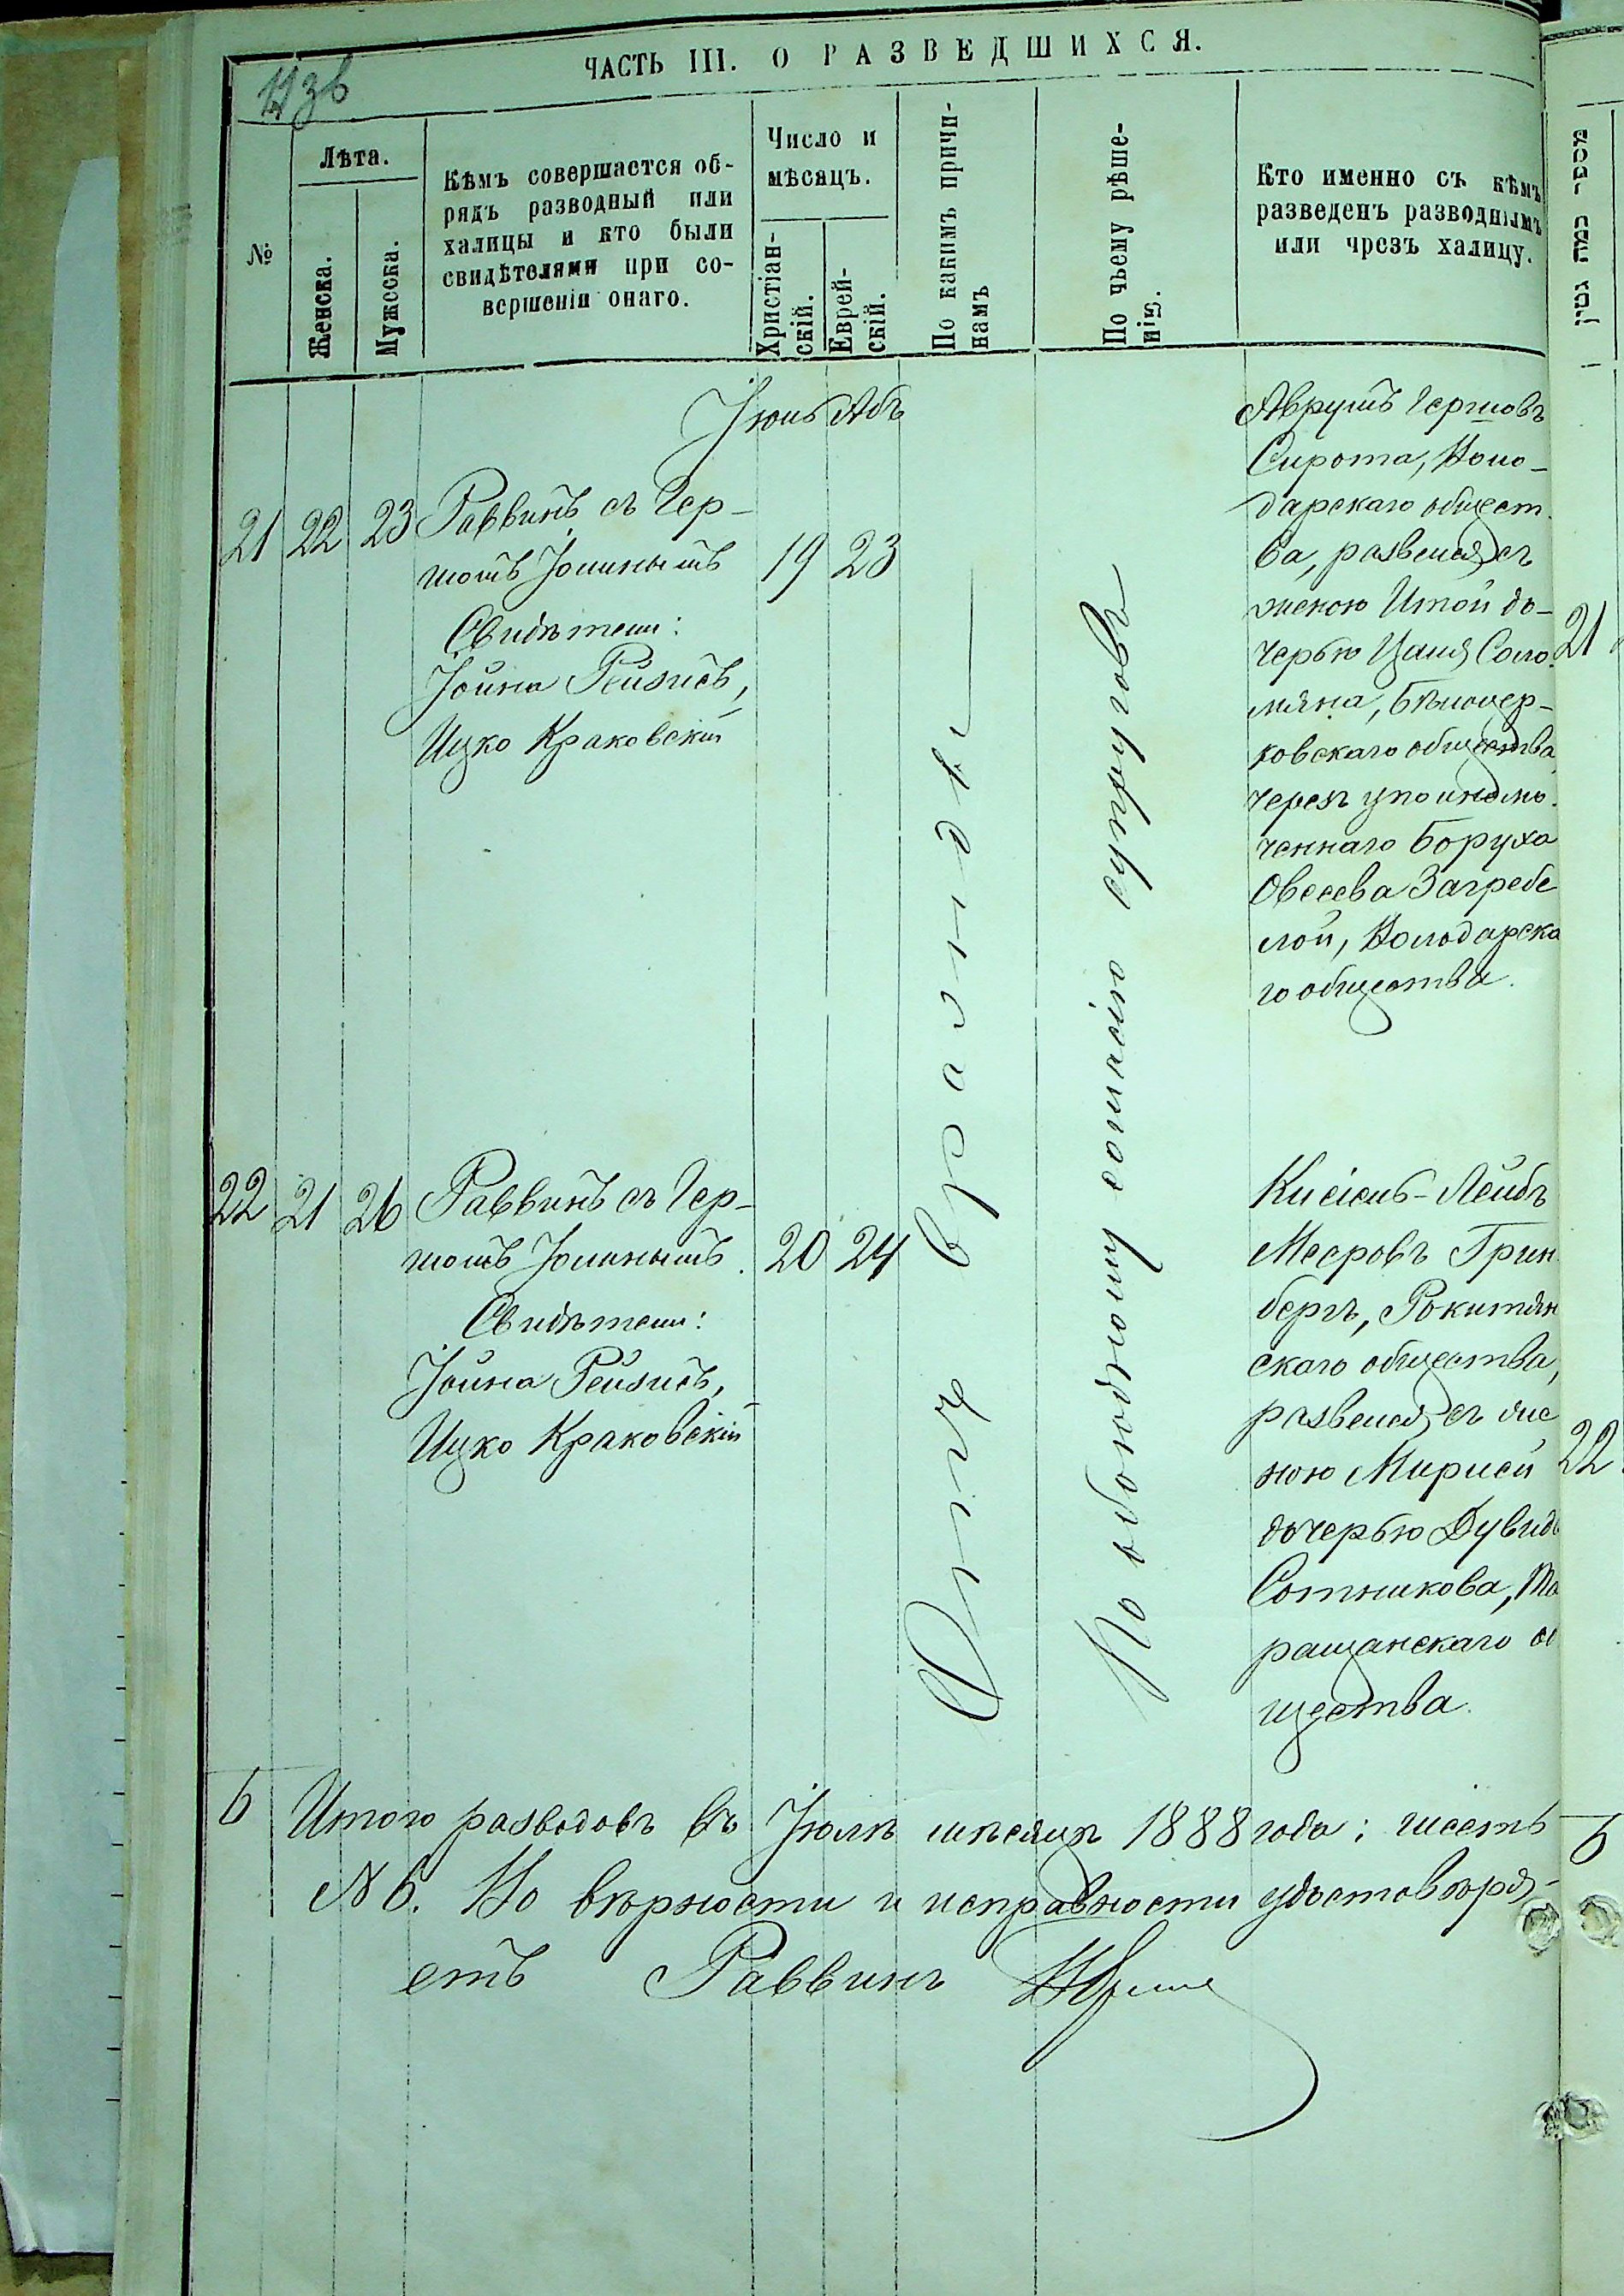 ЧАСТЬ III. О РАЗВЕДШИХСЯ.
№
Лѣта.
Женска.
Мужеска.
Кѣмъ совершается об-
рядъ разводный или
халицы и кто были
свидѣтелями при со-
вершеніи онаго.
Число и
мѣсяцъ.
Христіан-
скій.
Еврей-
скій.
По какимъ причи-
намъ
По чьему рѣше-
нію.
Кто именно съ кѣмъ
разведенъ разводнымъ
или чрезъ халицу.
מספר כמה גטין
Іюль Абъ
21 22 23
Раввинъ съ Гер-
шомъ
Свидѣтели:
Іойна Рейзисъ,
Ицко Краковскій
19 23
Аврумъ Гершовъ
Сирота, Воло-
дарскаго общест-
ва, развелся съ
женою Итой до-
черью Соло-
мяна, Бѣлоцер-
ковскаго общества,
черезъ уполномо-
ченнаго Боруха
Овсеева Загребе
лой, Володарска
го общества.
21
22 21 26
Раввинъ съ Гер-
шомъ
Свидѣтели:
Іойна Рейзисъ,
Ицко Краковскій
20 24
Кисіель-Лейбъ
Мееровъ Грин
бергъ, Рокитян
скаго общества,
развелся съ же
ною Мирисей
дочерью Дувида
Сотникова, Та
ращанскаго об
щества.
22
Отъ вражды
По обоюдному согласію супруговъ
6 Итого разводовъ въ Іюлѣ мѣсяцѣ 1888 года: шесть
№ 6. Во вѣрности и исправности удостовѣря-
етъ Раввинъ
6